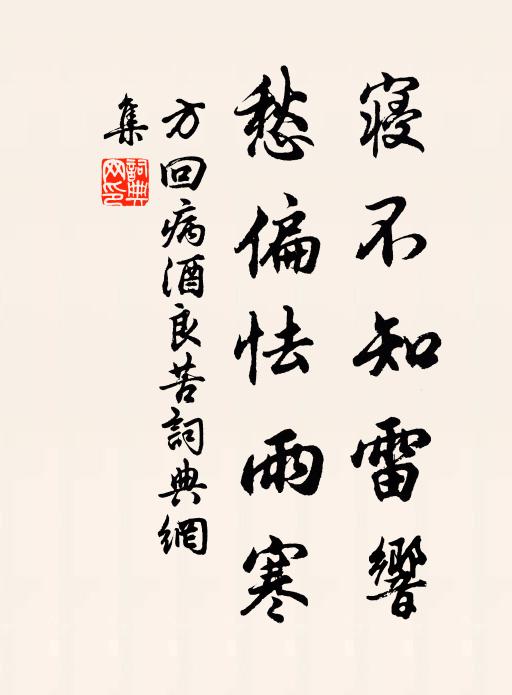 寑不知雷響
愁偏怯雨寒
方回病酒良苦詞典網
集
詞典網印